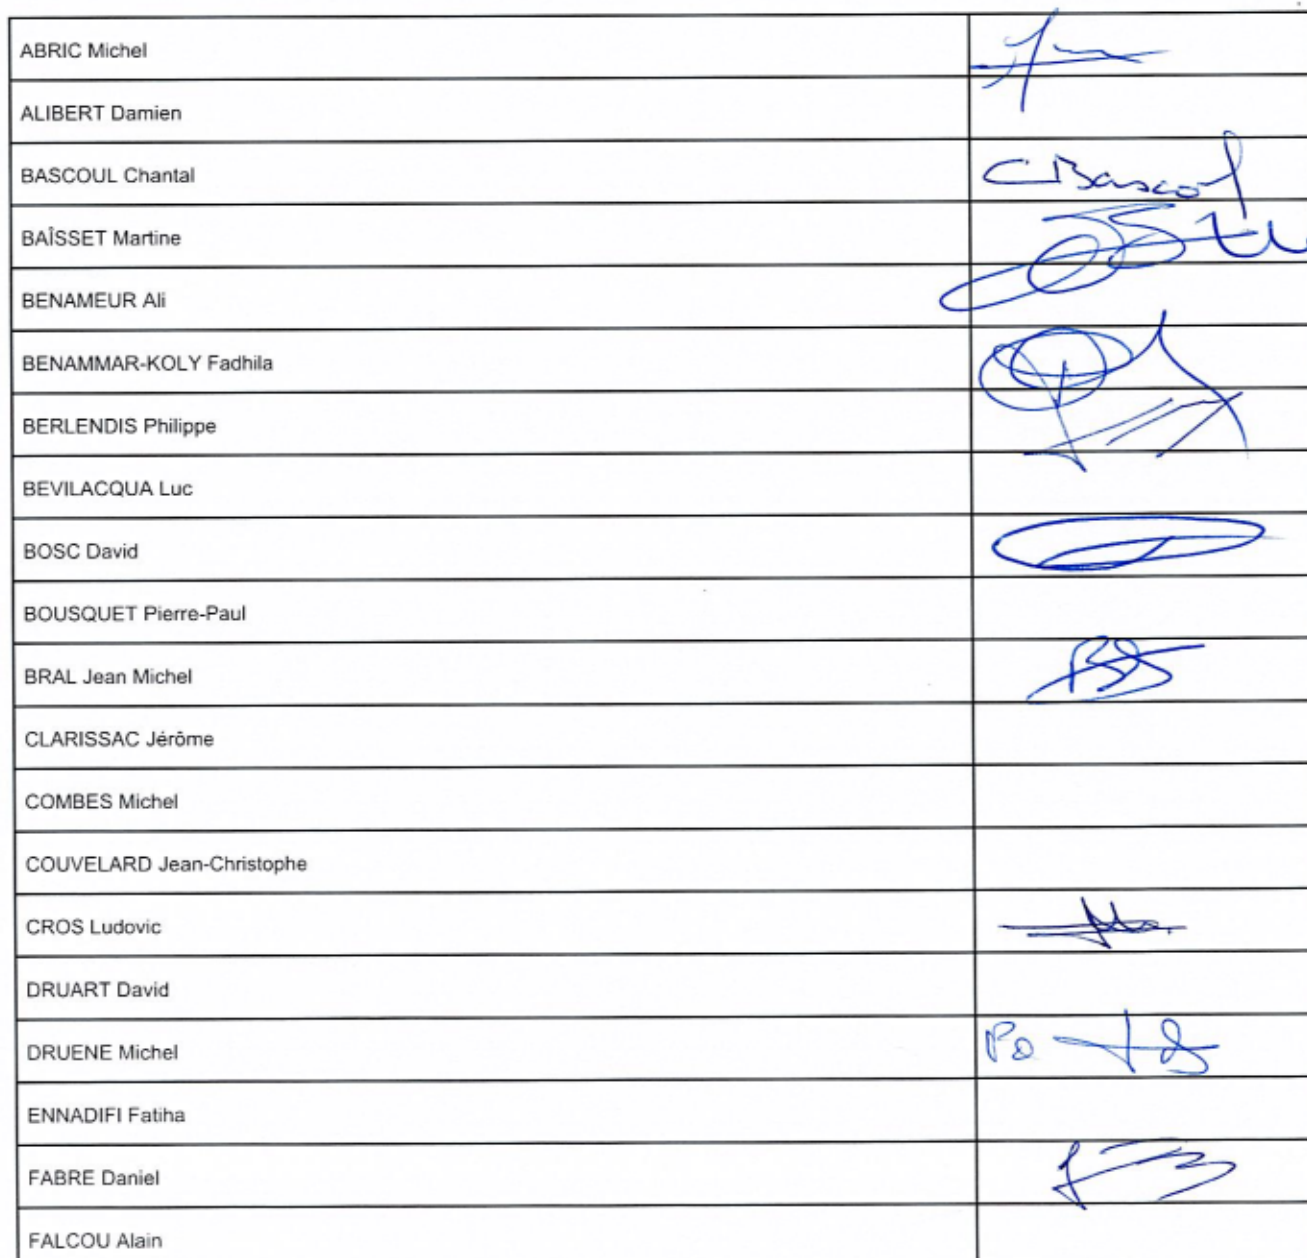 ABRIC Michel
ALIBERT Damien
BASCOUL Chantal
C Bascoul
BAÎSSET Martine
BENAMEUR Ali
BENAMMAR-KOLY Fadhila
BERLENDIS Philippe
BEVILACQUA Luc
BOSC David
BOUSQUET Pierre-Paul
BRAL Jean Michel
CLARISSAC Jérôme
COMBES Michel
COUVELARD Jean-Christophe
CROS Ludovic
DRUART David
DRUENE Michel Po
ENNADIFI Fatiha
FABRE Daniel
FALCOU Alain